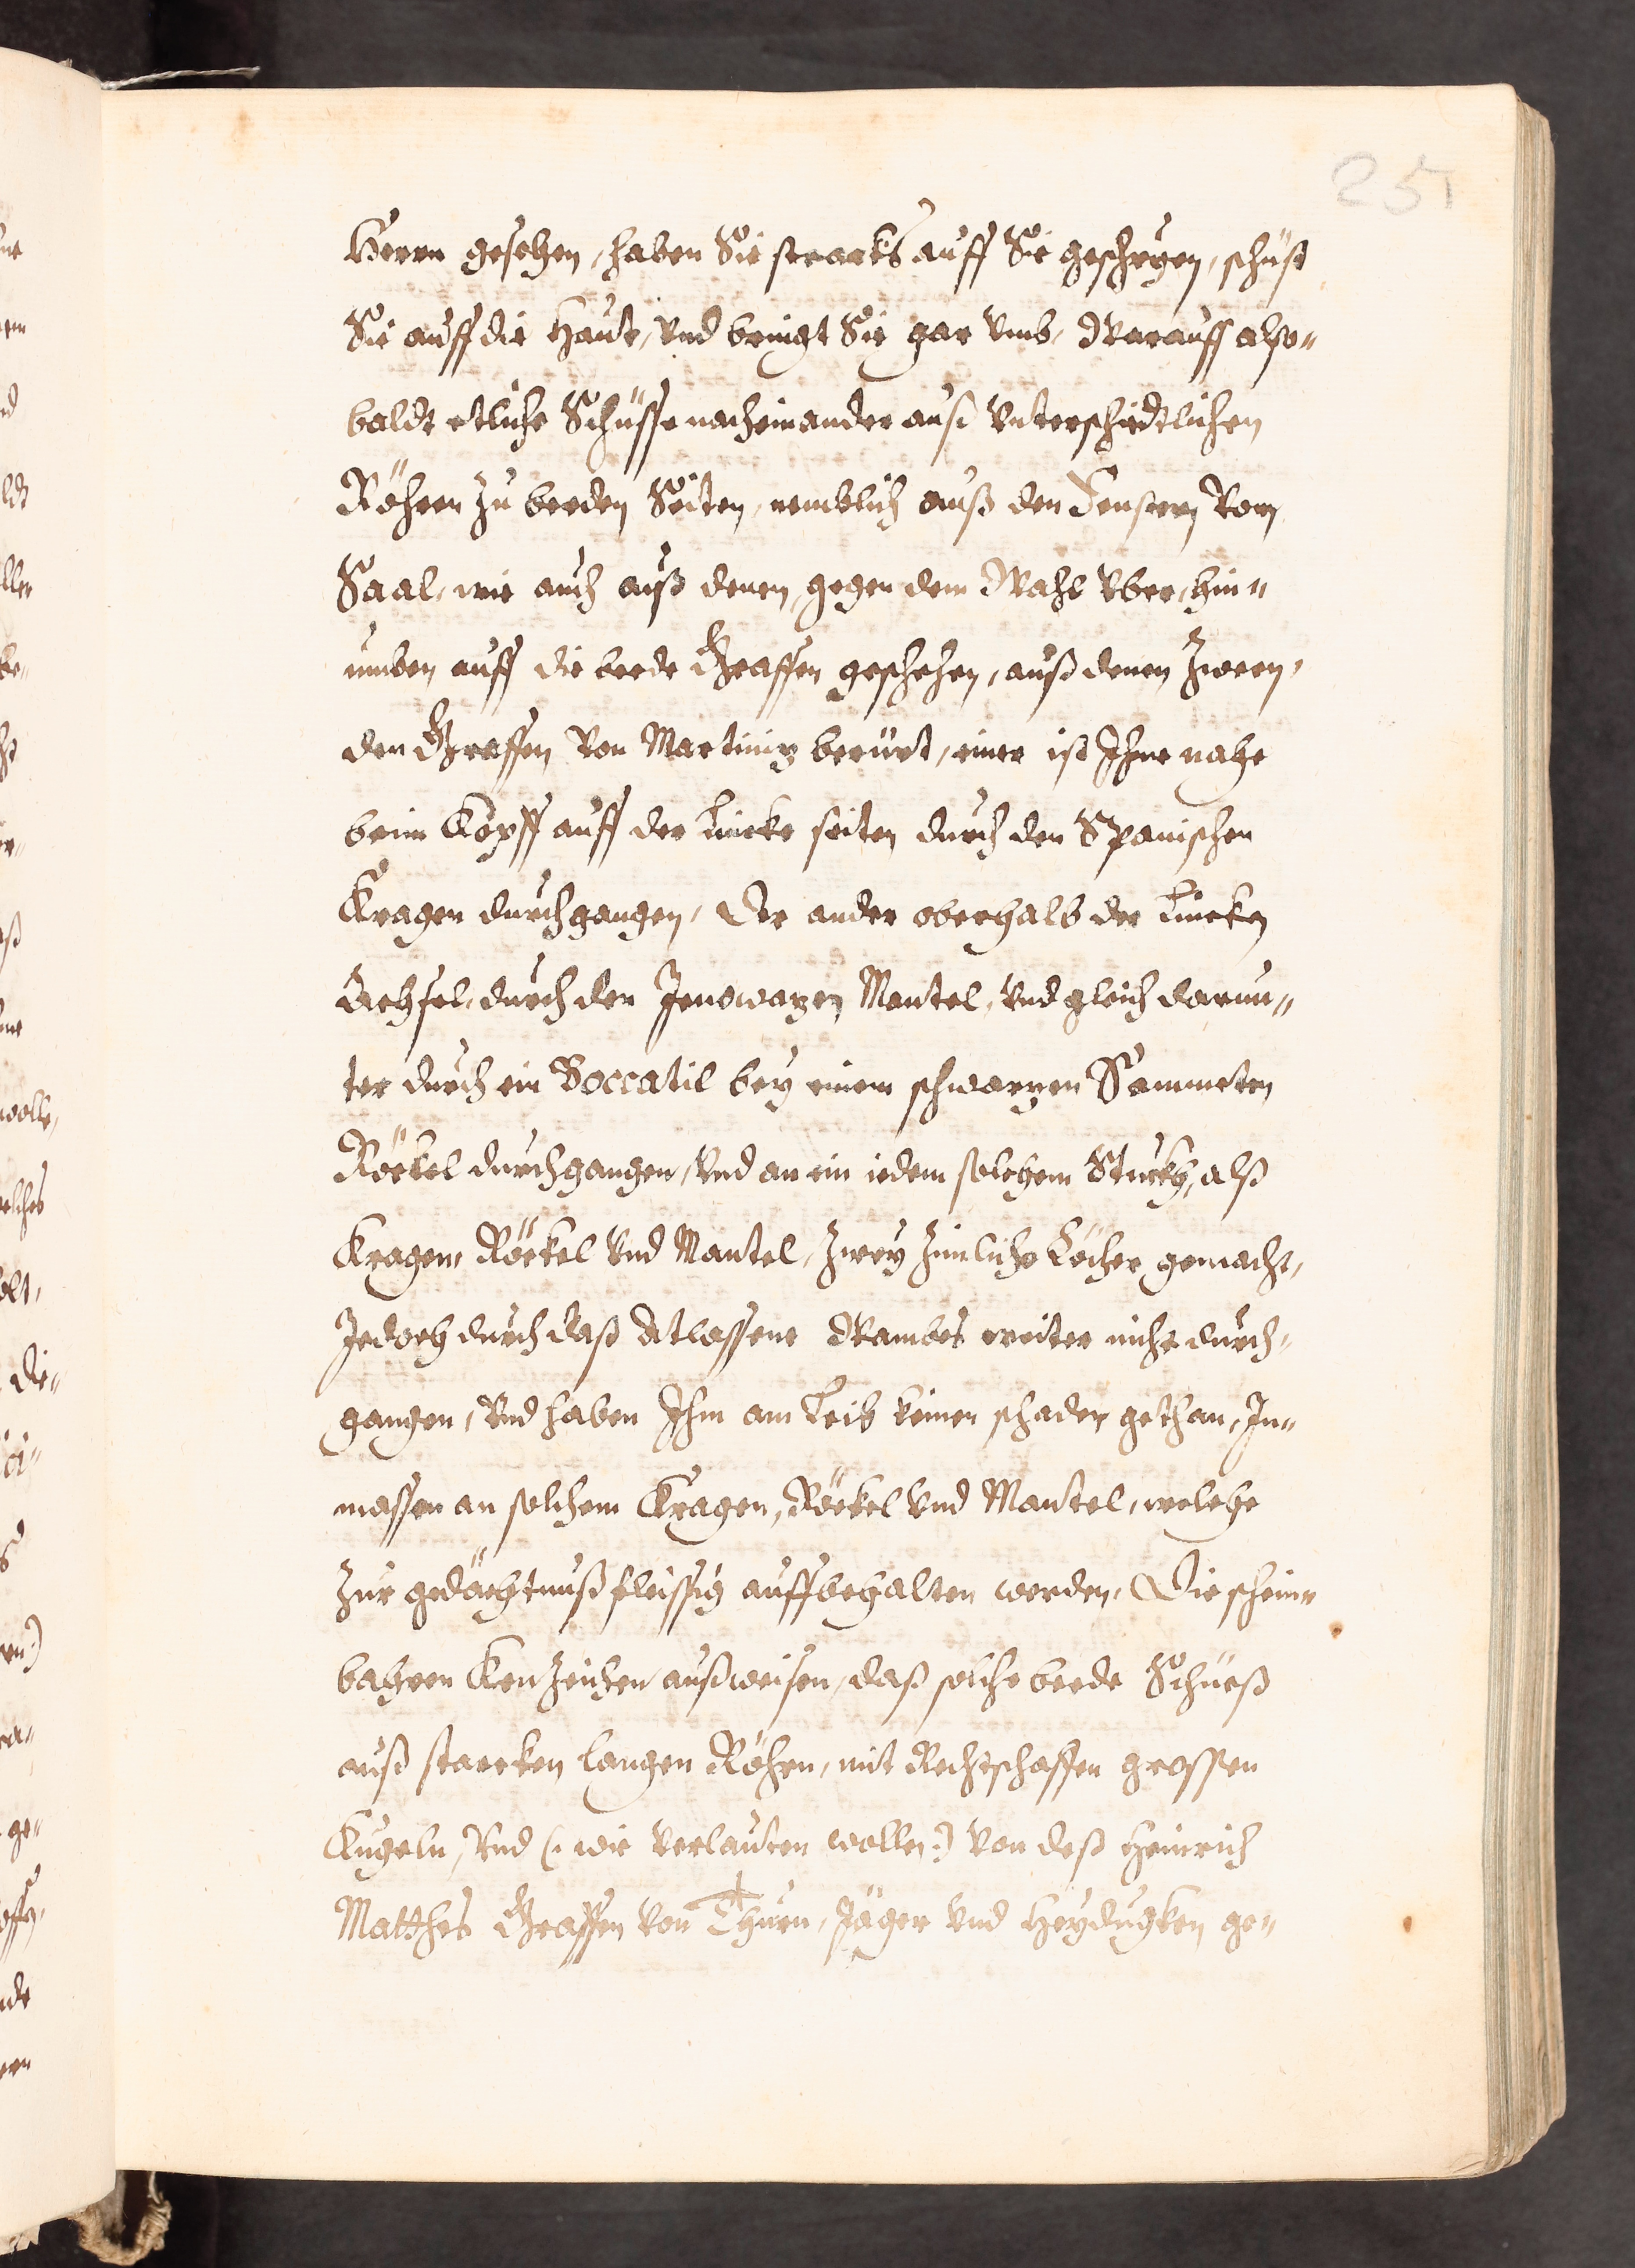 251
Herrn gesehen, haben Sie stracks auff Sie geschryen, schüst
Sie auff die Haüt, Vnd bringt Sie gar Vmb, Warauff also=
baldt etliche Schüsse nacheinander auß Vnterschidtlichen
Röhren zu beeden Seiten, nemblich auß den Fenstern Vom
Saal, wie auch auß denen, gegen dem Wahl Vber, hin=
umben auff die beede Graffen geschehen, auß denen Zween,
den Graffen Von Martiniz berürt, einer ist Ihme nahe
beim Kopff auff der Lincke seiten durch den Spanischen
Kragen durchgangen, Der ander oberhalb der Lincken
Achsel, durch den Mantel, Vnd gleich darun=
ter durch ein Boccatil bey einem schwarzen Sammeten
Röckel durchgangen, Vnd an ein iedem solchem Stuckh, alß
Kragen, Röckel Vnd Mantel, Zwey Zimliche Löcher gemacht,
Jedoch durch daß Atlassene Wambes weiter nicht durch=
gangen, Vnd haben Ihm am Leib keinen schaden gethan, In=
massen an solchem Kragen, Röckel Vnd Mantel, welche
Zur gedächtnuß fleissig auffbehalten werden, Die schein=
bahren Kenzeichen außweisen, daß solche beede Schüeß
auß starcken langen Röhrn, mit Rechtschaffen grossen
Kugeln, Vnd (: wie Verlauten wollen :) Von deß Heinrich
Matthes Graffen Von Thurn, Jäger Vnd Heyducken ge=